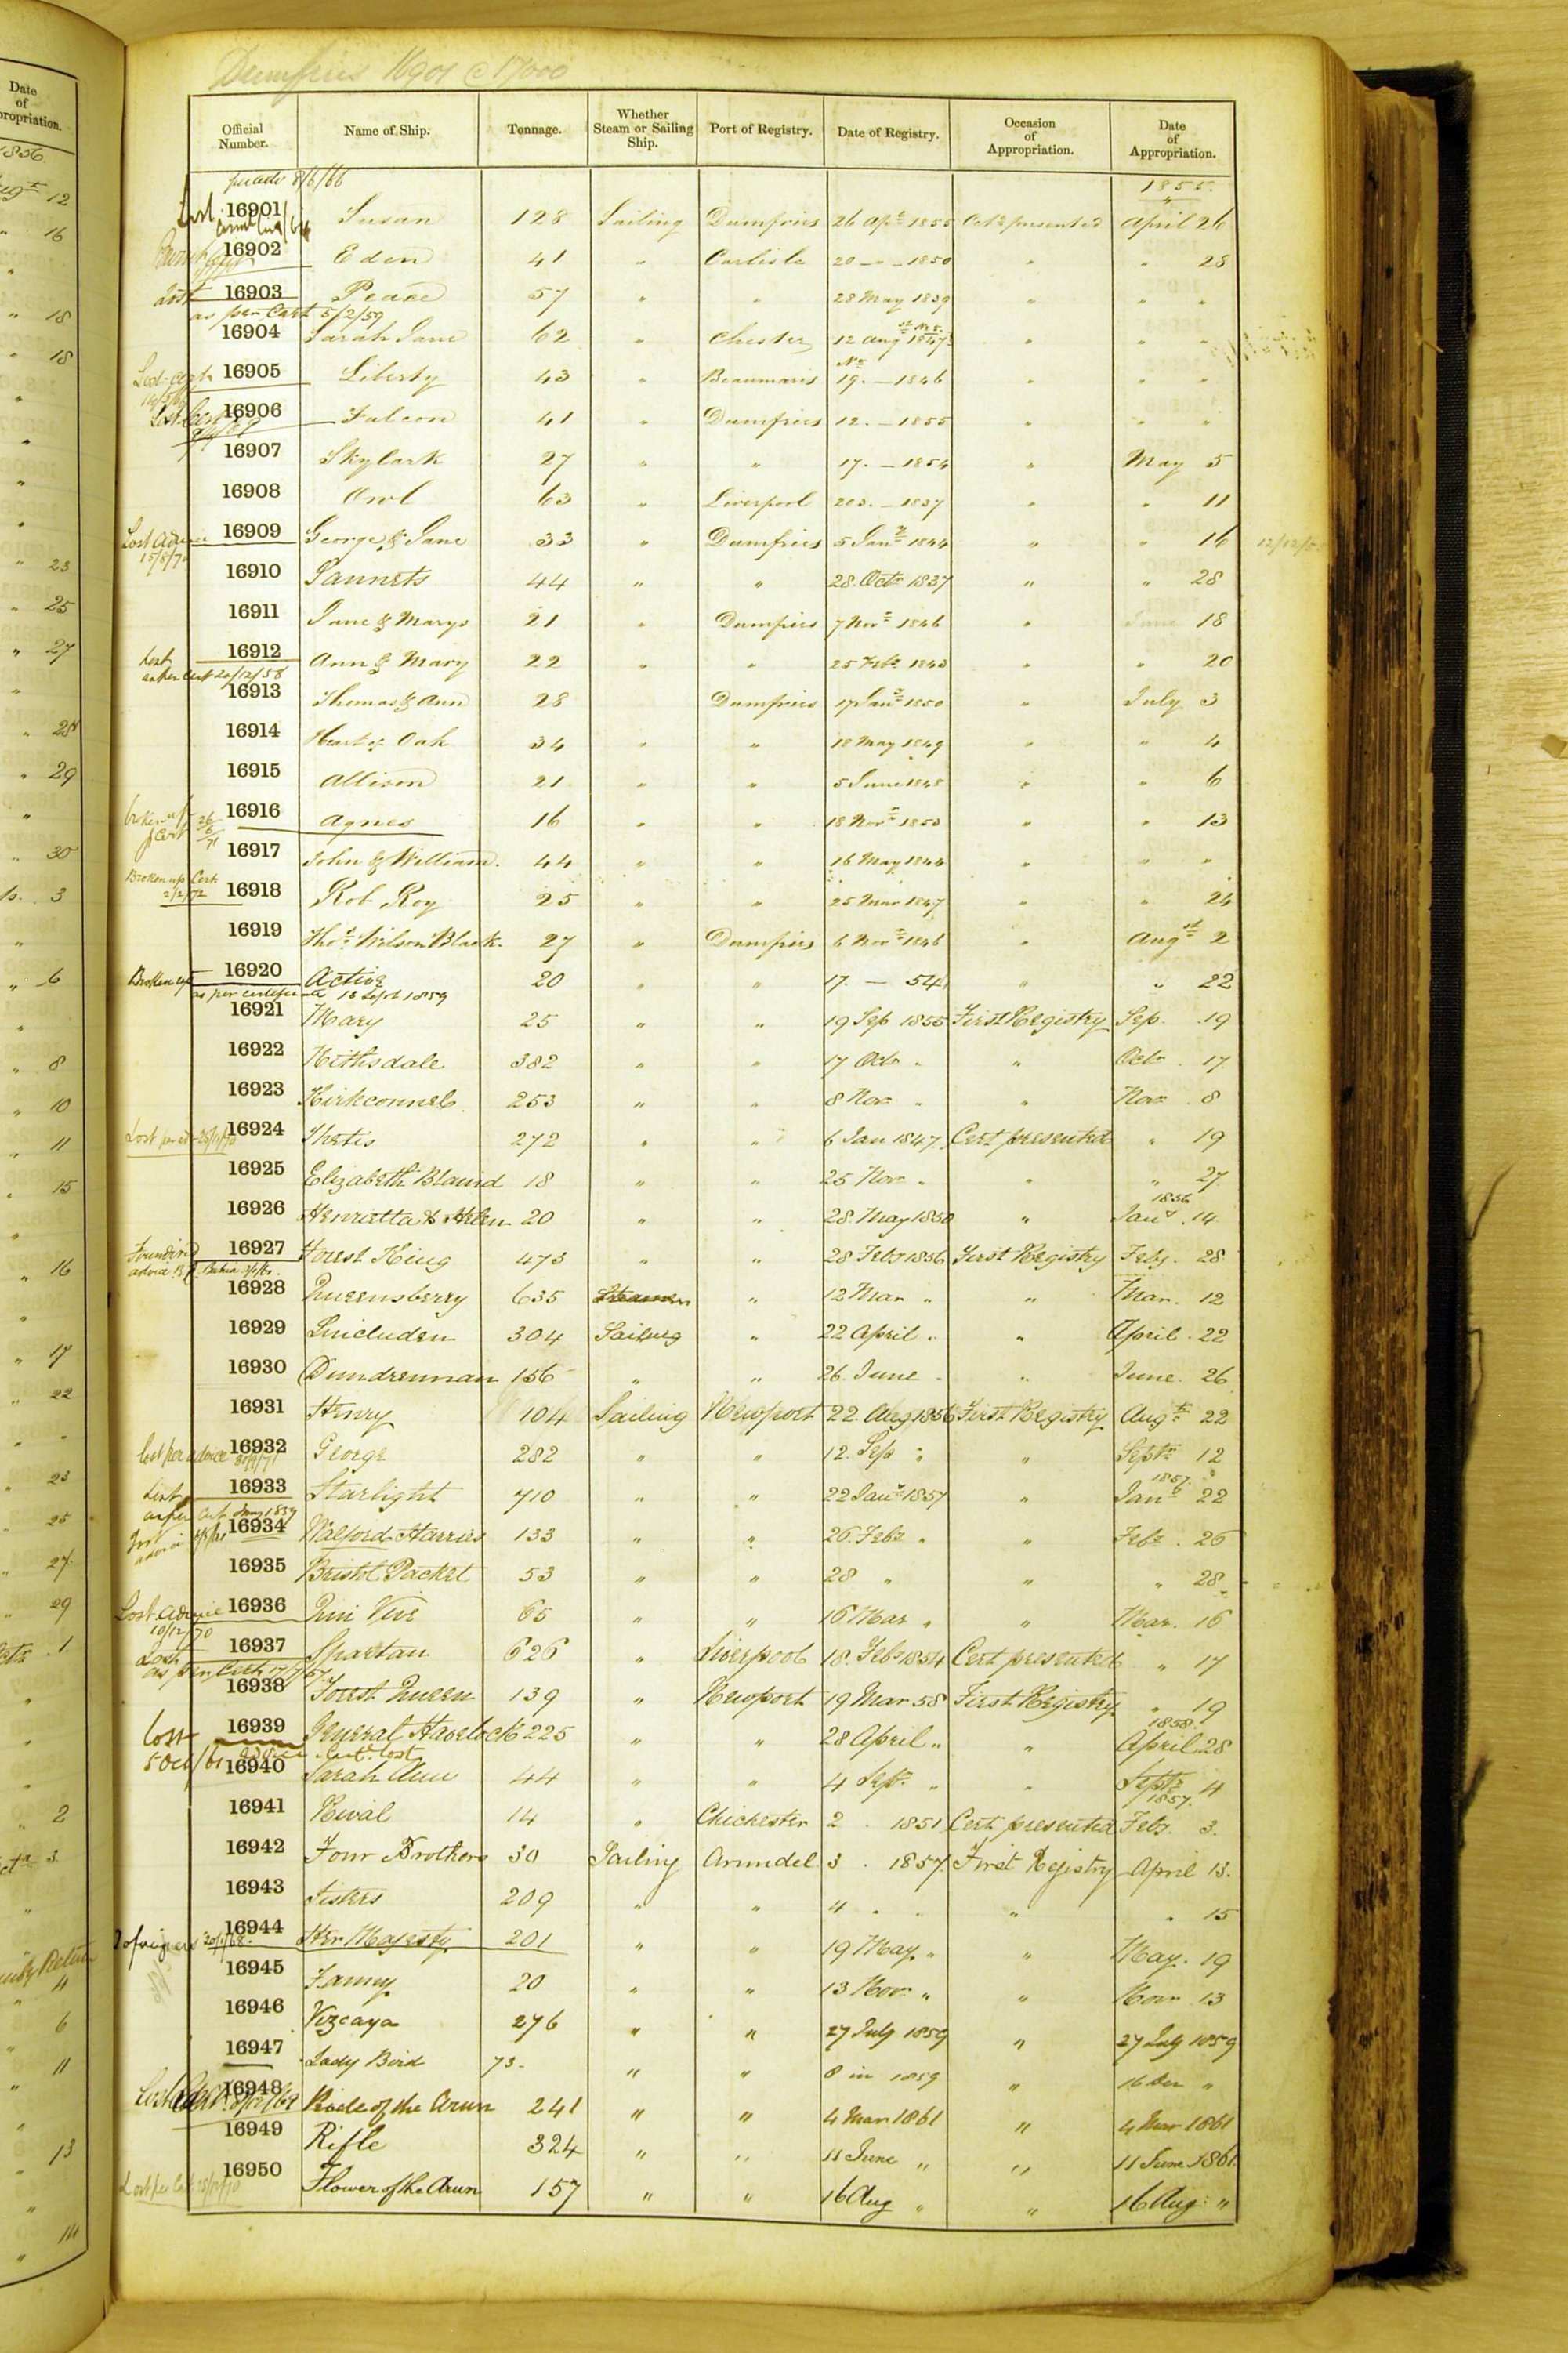 Dumfries 16901 @ 17000
Official Number. Name of Ship. Tonnage. Whether Steam or Sailing Ship. Port of Registry. Date of Registry. Occasion of Appropriation. Date of Appropriation.
1855
16901 Susan 128 Sailing Dumfries 26 Apl 1855 April 26
16902 Eden 41 " Carlisle 20 - " - 1850 " " 28
Lost 16903 Peace 57 " " 28 May 1839 " " "
as per Cert 5/2/59
16904 Sarah Jane 62 " Chester 12 Aug 1847 " " "
16905 Liberty 43 " Beaumaris 19. - 1846 " " "
16906 Falcon 41 " Dumfries 12. - 1855 " " "
16907 Skylark 27 " " 17. - 1854 " May 5
16908 Owl 63 " Liverpool 203. - 1837 " " 11
Lost Advice 16909 George & Jane 33 " Dumfries 5 Jany 1844 " " 16
16910 44 " " 28 Octr 1837 " " 28
16911 Jane & Marys 21 " Dumfries 7 Novr 1846 " June 18
Lost 16912 Ann & Mary 22 " " 25 Feby 1843 " " 20
as per Cert 20/12/58
16913 Thomas & Ann 28 Dumfries 17 Jany 1850 " July 3
16914 Heart of Oak 34 " " 18 May 1849 " " 4
16915 Allison 21 " " 5 June 1848 " " 6
16916 Agnes 16 " " 18 Novr 1853 " " 13
16917 John & William. 44 " " 16 May 1844 " " "
Broken up Cert
2/2/72 16918 Rob Roy 25 " " 25 Mar 1847 " " 24
16919 Thos Wilson Black. 27 " Dumfries 6 Novr 1846 " Augst 2
Broken up 16920 Active 20 " " 17. - 54 " " 22
as per certificate 18 Sept 1859
16921 Mary 25 " " 19 Sep 1855 First Registry Sep. 19
16922 Nithsdale 382 " " 17 Octr " " Octr. 17
16923 Kirkconnel 253 " " 8 Nov " " Nov 8
16924 Thetis 272 " " 6 Jan 1847. Cert presented " 19
16925 Elizabeth 18 " " 25 Nov " " " 27
1856
16926 Henrietta & Helen 20 " " 28. May 1850 " Jany. 14
16927 Forest King 473 " " 28 Feby 1856 First Registry Feby. 28
16928 Queensberry 635 " 12 Mar " " Mar. 12
16929 Lincluden 304 Sailing " 22 April " " April. 22
16930 Dundrennan 156 " " 26. June " " June. 26
16931 Henry 104 Sailing Newport 22. Aug 1856 First Registry Augt 22
lost per advice 16932 George 282 " " 12. Sep " " Septr 12
1857
16933 Starlight 710 " " 22 Jany 1857 " Jany 22
16934 Walford Harries 133 " " 26. Feby " " Feby. 26
16935 Bristol Packet 53 " " 28 " " " 28
Lost Advice 16936 Qui Vive 65 " " 16 Mar " " Mar. 16
10/12/70
Lost 16937 Spartan 626 " Liverpool 18. Feby 1854 Cert presented " 17
as per Cert
16938 Forest Queen 139 " Newport 19 Mar 58 First Registry " 19
1858.
Lost 16939 General Havelock 225 " " 28 April " " April 28
5 Oct/61 advice Cert. lost
16940 Sarah Ann 44 " " 4 Septr " " Septr 4
1857.
16941 Rival 14 " Chichester 2 . 1851. Cert presented Feby. 3.
16942 Four Brothers 30 Sailing Arundel 3 . 1857. First Registry April 13.
16943 Sisters 209 " " 4 . . " " 15
16944 Her Majesty 201 " " 19 May " " May. 19
16945 Fanny 20 " " 13 Nov " " Nov. 13
16946 Vizcaya 276 " " 27 July 1859 " 27 July 1859
16947 Lady Bird 73. " " 8 in 1859 " 16 Dec "
16948 of the Arun 241 " " 4 Mar 1861 " 4 Mar 1861
16949 Rifle 324 " " 11 June " " 11 June 1861
16950 Flower of the Arun 157 " " 16 Aug " " 16 Aug "